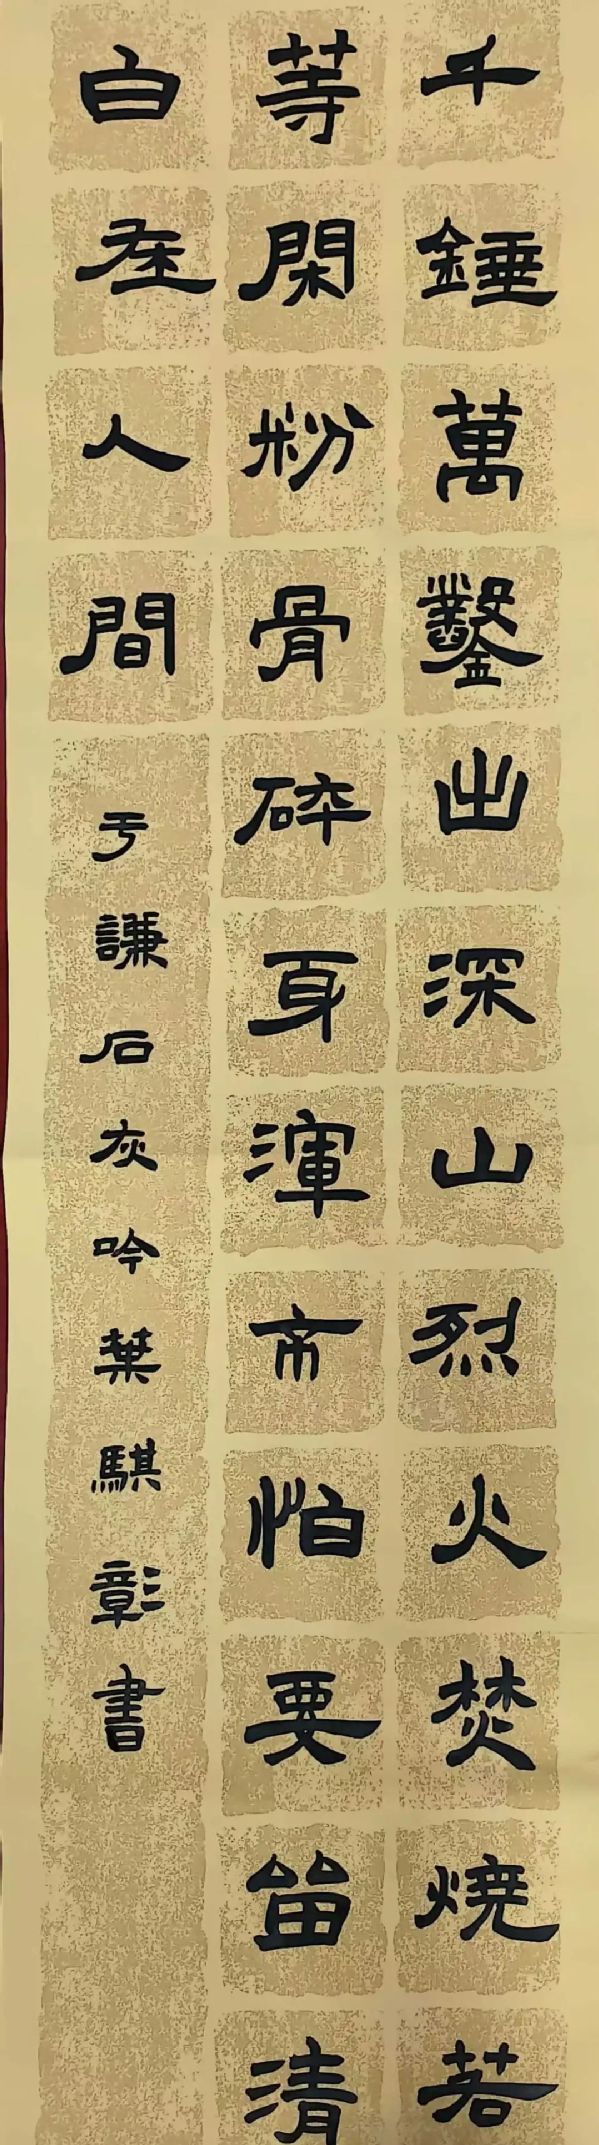 千錘萬鑿出深山烈火焚燒若
等閑粉骨碎身渾不怕要留清
白在人間
于謙石灰吟葉騏彰書